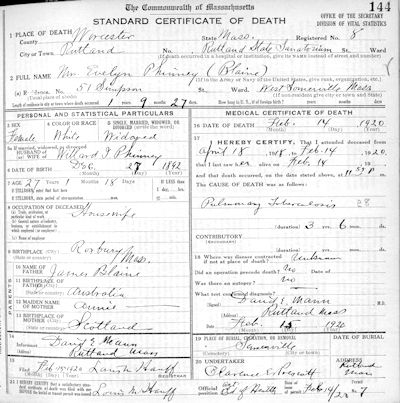 The Commonwealth of Massachusetts
144
STANDARD CERTIFICATE OF DEATH
OFFICE OF THE SECRETARY
DIVISION OF VITAL STATISTICS
1 PLACE OF DEATH
County Worcester State Mass. Registered No. 8
City or Town Rutland No. Rutland State Sanatorium St. Ward
(If death occurred in a hospital or institution, give its NAME instead of street and number)
2 FULL NAME Mrs. Evelyn Phinney (Blaine)
(a) Residence. No. 51 Simpson St. Ward West Somerville Mass
(Usual place of abode)
Length of residence in city or town where death occurred 1 years 9 months 27 days
PERSONAL AND STATISTICAL PARTICULARS
3 SEX Female
4 COLOR OR RACE White
5 SINGLE, MARRIED, WIDOWED, OR DIVORCED (write the word) Widowed
HUSBAND of
(or) WIFE of Willard F Phinney
6 DATE OF BIRTH Dec. 27 1892
(Month) (Day) (Year)
7 AGE 27 Years 1 Months 18 Days
8 OCCUPATION OF DECEASED Housewife
9 BIRTHPLACE Roxbury
Mass.
10 NAME OF FATHER James Blaine
11 BIRTHPLACE OF FATHER Australia
(State or country)
12 MAIDEN NAME OF MOTHER Annie
13 BIRTHPLACE OF MOTHER Scotland
(State or country)
PARENTS
14 Informant David E Mann
(Address) Rutland Mass
15 Filed Feb 15 1920 Louis M Hanff
REGISTRAR
Louis M. Hanff
MEDICAL CERTIFICATE OF DEATH
16 DATE OF DEATH Feb. 14 1920
(Month) (Day) (Year)
17 I HEREBY CERTIFY, That I attended deceased from
April 18, 1918, to Feb 14, 1920,
that I last saw her alive on Feb 14
and that death occurred, on the date stated above, at 11.50 P m.
The CAUSE OF DEATH was as follows:
Pulmonary Tuberculosis 28
(duration) 3 yrs. 6 mos. ds.
CONTRIBUTORY
(SECONDARY)
(duration) yrs. mos. ds.
18 Where was disease contracted
if not at place of death? Unknown
Did an operation precede death? No Date of
Was there an autopsy? No
What test confirmed diagnosis?
(Signed) David E. Mann M.D.
Rutland Mass
Feb. 15 1920
19 PLACE OF BURIAL, CREMATION, OR REMOVAL
Somerville
(Cemetery) (City or town)
DATE OF BURIAL
20 UNDERTAKER
ADDRESS
Rutland
Mass
Bd of Health